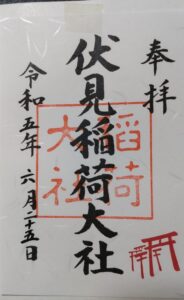 奉拝
伏見稲荷大社
稲荷大社
令和五年 六月二十五日